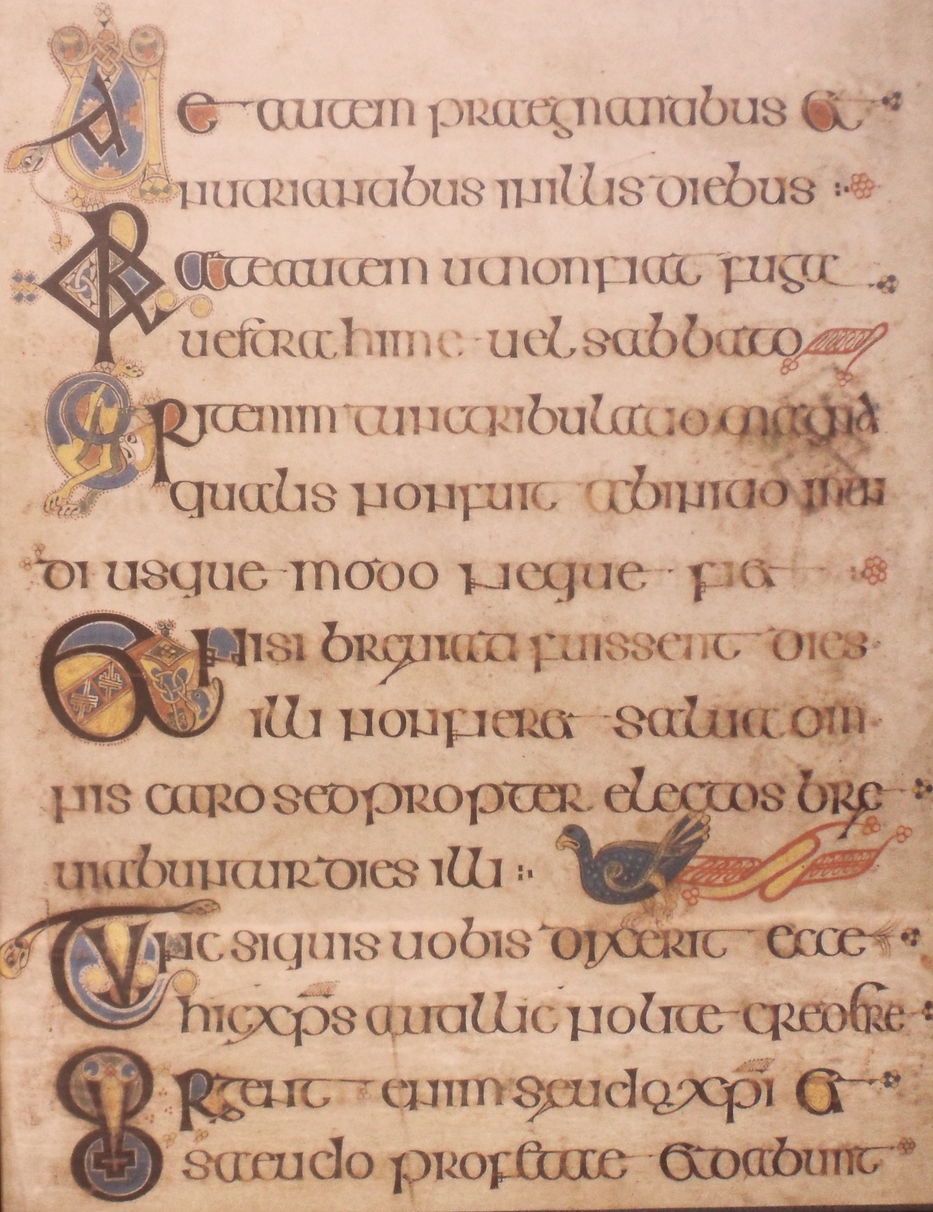 Uae autem praegnantibus et
nutrientibus in illis diebus
Orate autem ut non fiat fuga
uestra hime uel sabbato
Erit enim tunc tribulatio magna
qualis non fuit ab initio mun
di usque modo neque fiet
Et nisi breuiata fuissent dies
illi non fieret salua om
nis caro sed propter electos bre
uiabuntur dies illi
Tunc si quis uobis dixerit ecce
hic xps aut illic nolite credere
Surgent enim seudo xpi et
saeudo profetae et dabunt